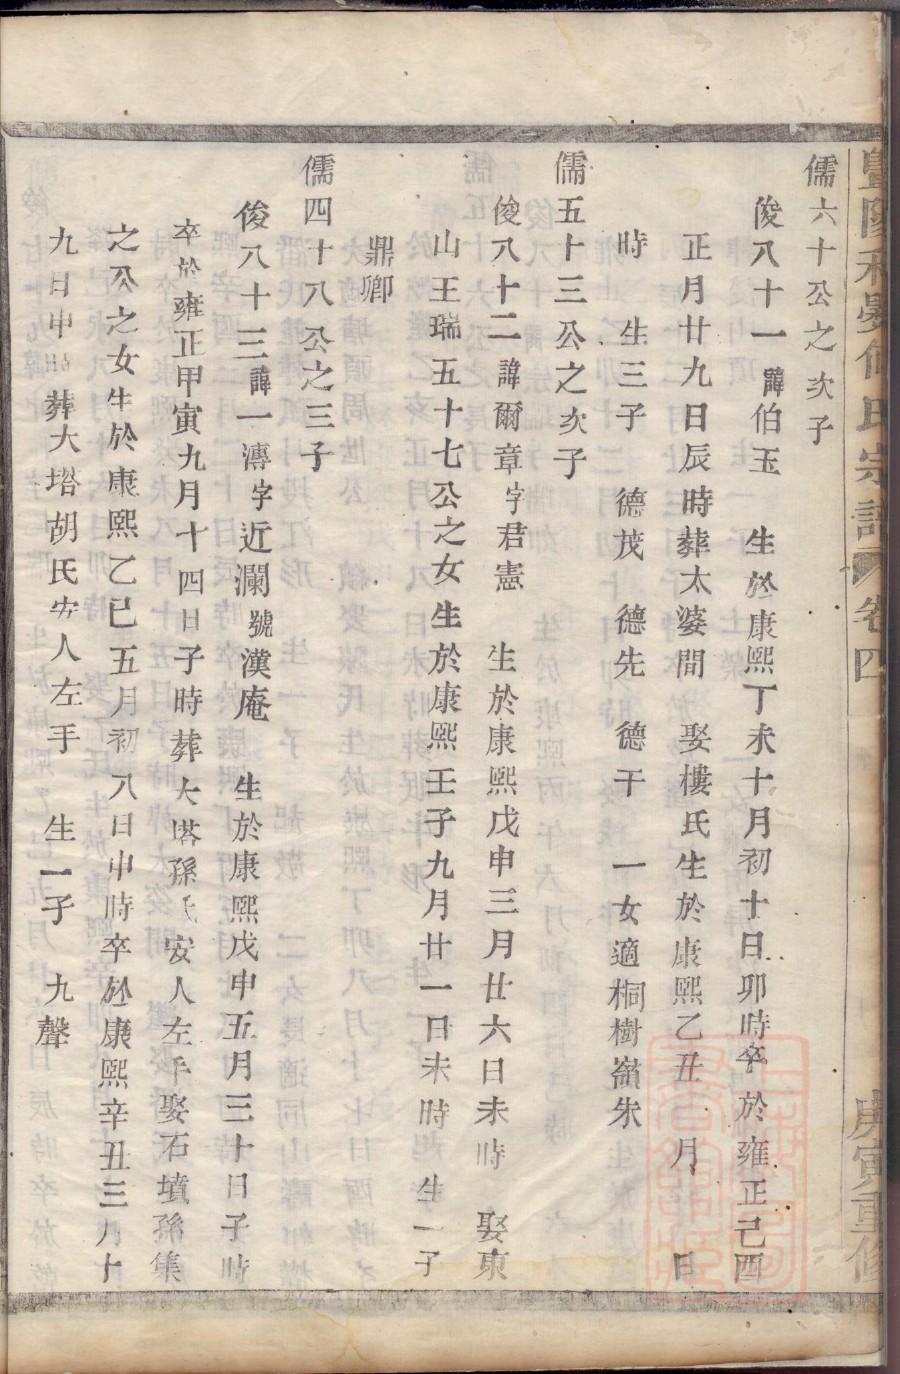 暨陽
氏宗譜
卷四
庚寅重修
儒六十公之次子
俊八十一諱伯玉 生於康熙丁未十月初十日卯時卒於雍正己酉
正月廿九日辰時葬太婆間 娶樓氏生於康熙乙丑 月 日
時 生三子 德茂 德先 德干 一女適桐樹嶺朱
儒五十三公之次子
俊八十二諱爾章字君憲 生於康熙戊申三月廿六日未時 娶東
山王瑞五十七公之女生於康熙壬子九月廿一日未時 生一子
鼎卿
儒四十八公之三子
俊八十三諱一漙字近瀾號漢庵 生於康熙戊申五月三十日子時
卒於雍正甲寅九月十四日子時葬大塔孫氏安人左手娶石墳孫集
之公之女生於康熙乙巳五月初八日申時卒於康熙辛丑三月十
九日申時葬大塔胡氏安人左手 生一子 九聲